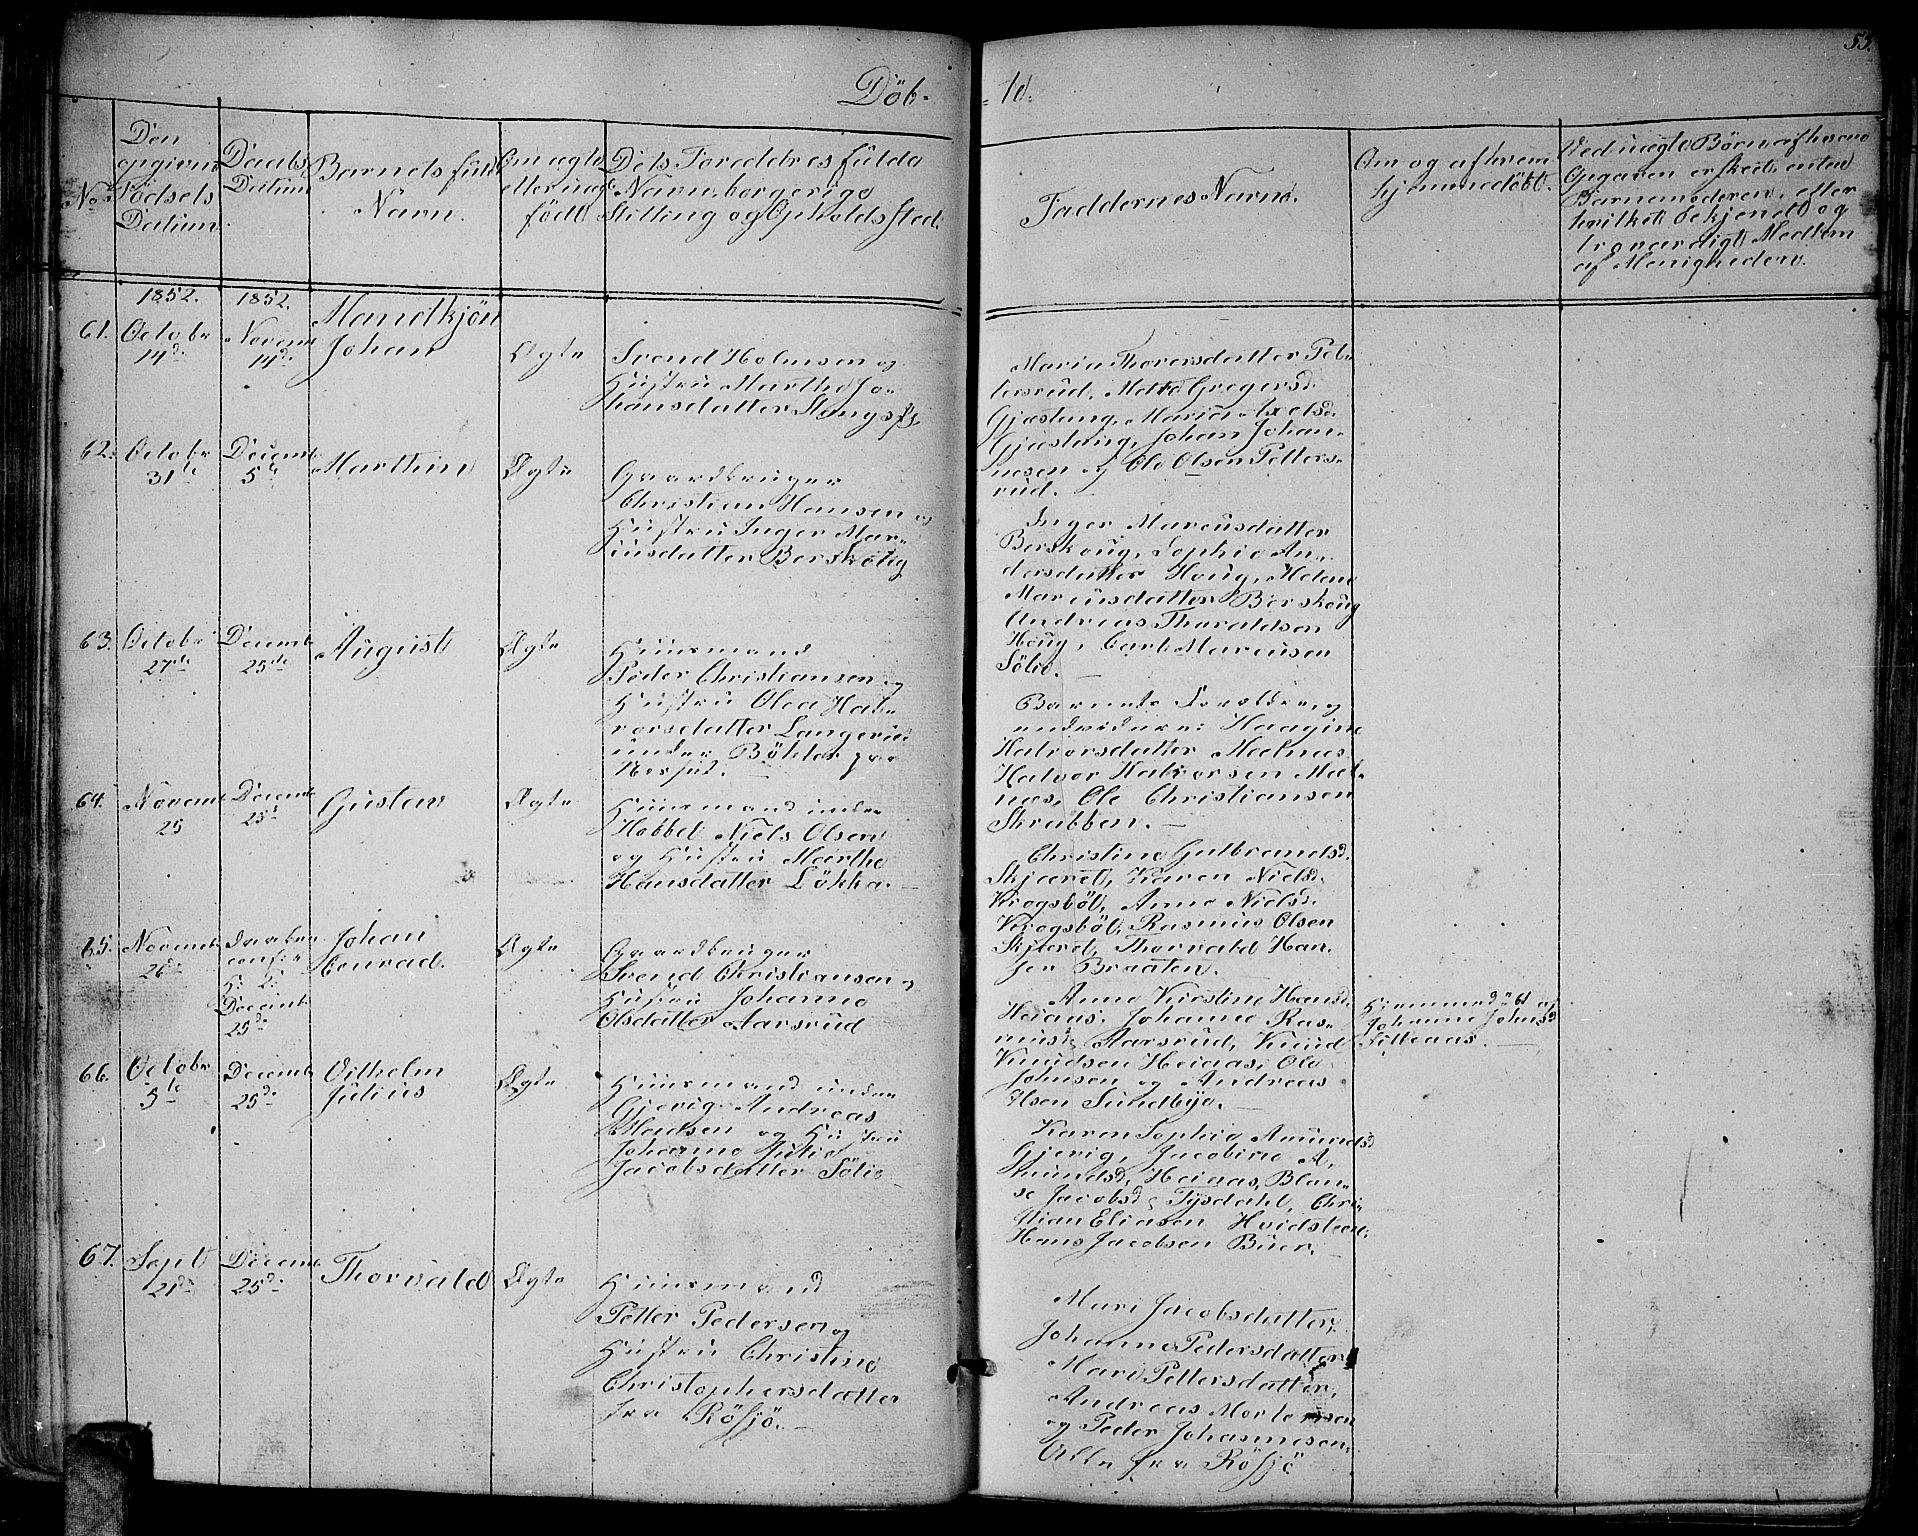 53.
Döb-
-te.
No
Den
opgivne
Fødsels
Datum
Daabs
Datum
Barnets fulde
Navn.
Om ægte
eller uægte
født
Dets Forældres fulde
Navn, borgerige
Stilling og Opholdssted.
Faddernes Navne.
Om og af hvem
hjemmedøbt.
Ved uægte Børn af hvem
Opgaven er skeet, enten
Barnemoderen, eller
hvilket bekjendt og
troværdigt Medlem
af Menigheden.
1852.
1852.
Mandkjön
61.
Octobr
14d
Novem
14d
Johan
Ægte
Svend Holmsen og
Hustru Marthe Jo-
hansdatter Stangs
Maria Thorersdatter Pet-
tersrud, Mette Gregersd.
Gjæstang, Maria Axelsd.
Gjæstang, Johan Johan-
nesen og Ole Olsen Petters-
rud.
62.
Octobr
31te
Decemb
5te
Marthin
Ægte
Gaardbruger
Christian Hansen og
Hustru Inger Mar-
cusdatter Berskoug
Inger Marcusdatter
Berskoug, Sophie An-
dersdatter Houg, Helene
Marcusdatter Berskoug
Andreas Thoraldsen
Houg, Carl Marcusen
Sölie.
63.
Octobr
27de
Decemb
25de
August
Ægte
Huusmand
Peder Christiansen og
Hustru Olea Hal-
vorsdatter Langerud
under Böhler paa
Nessut.
Barnets Forældre, og
endvidere: Haagine
Halvorsdatter Mælnæs
Halvor Halvorsen Mæl-
næs, Ole Christiansen
Skrabben.
64.
Novemb
25
Decemb
25d
Gustav
Ægte
Huusmand under
Hobbel Niels Olsen
og Hustru Marthe
Hansdatter Lökka.
Christine Gulbrandsd.
Skjæret, Karen Nielsd.
Krogsböl, Anne Nielsd.
Krogsböl, Rasmus Olsen
Skjæret, Thorvald Han-
sen Braaten.
65.
Novemb
26d
Daaben
conf: i
H: K:
Decemb
25d
Johan
Conrad.
Ægte
Gaardbruger
Svend Christiansen og
Hustru Johanne
Olsdatter Aarsrud
Anne Kirstine Hansd.
Heiaas, Johanne Ras-
musd. Aarsrud, Knud
Knudsen Heiaas, Ole
Johnsen og Andreas
Ilsen Sundbye.
Hjemmedöbt af
Johanne Johnsd.
66.
Octobr
5te
Decemb
25d
Vilhelm
Julius
Ægte
Huusmand under
Gjevig Andreas
Madsen og Hustru
Johanne Julie
Jacobsdatter Sölie
Karen Sophie Amundsd
Gjevig, Jacobine A-
mundsd. Heiaas, Blan-
se Jacobsd. Tysdahl, Chri-
stian Eliasen Hvidsteen,
Hans Jacobsen Buer.
67.
Sept
21d
Decemb
25d
Thorvald
Ægte
Huusmand
Petter Pedersen og
Hustru Christine
Christophersdatter
fra Rösjö.
Mari Jacobsdatter,
Johanne Pedersdatter
Mari Pettersdatter,
Andreas Mortensen
og Peder Johannesen.
Alle fra Rösjö